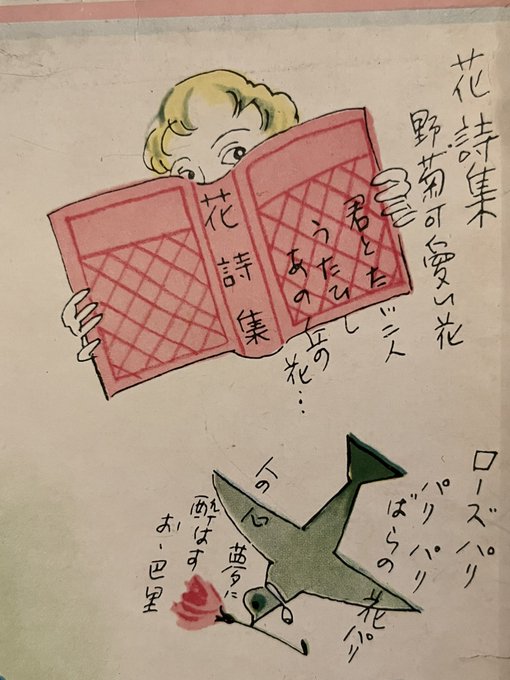 花詩集
野菊可愛い花
君とたゞ二人
うたひし
あの丘の
花…
花詩集
ローズパリ
パリパリ
ばらの花パリ
人の心
夢に
酔はす
おゝ巴里